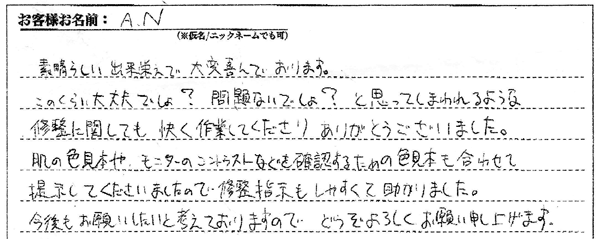 お客様お名前: A.N
(※仮名/ニックネームでも可)
素晴らしい出来栄えで大変喜んでおります。
このくらい大丈夫でしょ？ 問題ないでしょ？ と思ってしまわれるような
修整に関しても 快く作業してくださり ありがとうございました。
肌の色見本や、モニターのコントラストなどを確認するための色見本も合わせて
提示してくださいましたので修整指示もしやすくて助かりました。
今後もお願いしたいと考えておりますので どうぞよろしくお願い申し上げます。